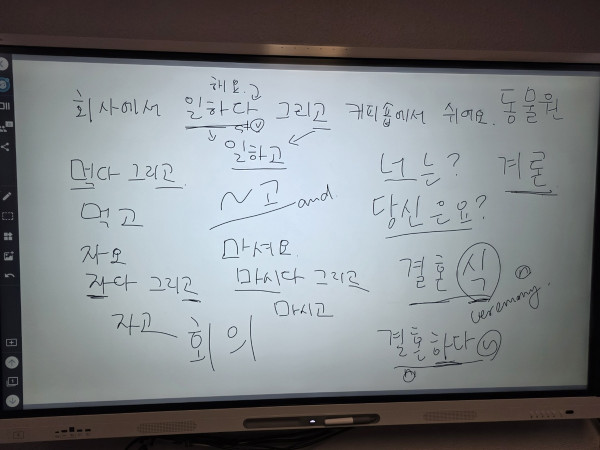 해요. 고
회사에서 일하다 그리고 커피숍에서 쉬어요. 동물원
일하고
먹다 그리고
먹고
~고 and.
너는? 겨룰
당신은요?
자요
자다 그리고
자고
마셔요
마시다 그리고
마시고
회의
결혼식
ceremony.
결혼하다